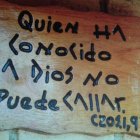 Quien HA
CONOCIDO
A DIOS NO
Puede CALLAR.